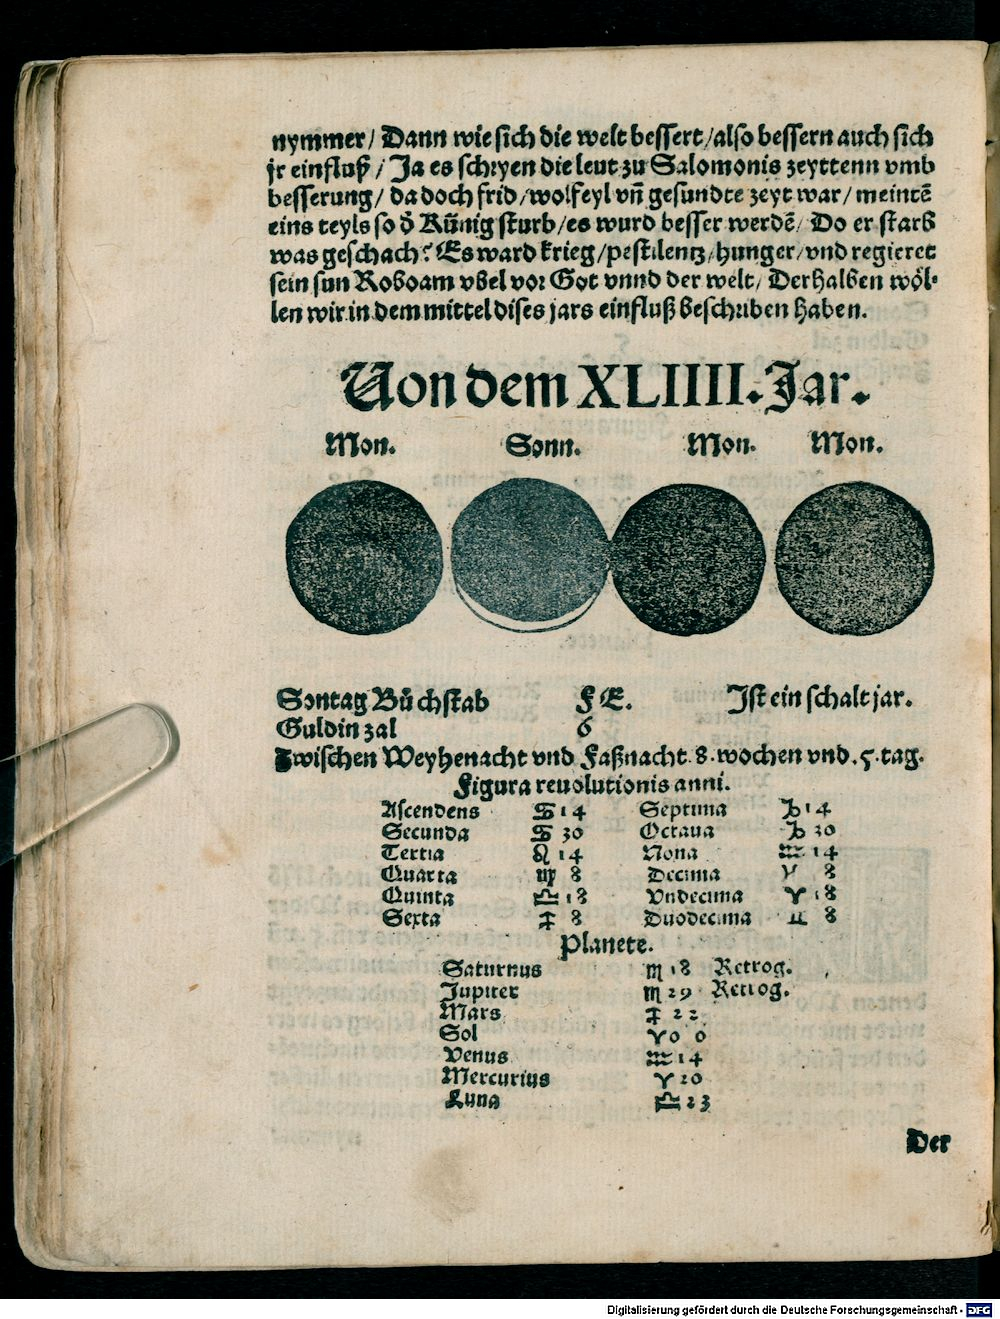 nymmer/ Dann wie sich die welt bessert/also bessern auch sich
jr einfluß/ Ja es schryen die leut zu Salomonis zeyttenn vmb
besserung/ da doch frid/wolfeyl vñ gesundte zeyt war/ meintẽ
eins teyls so d̾ Künig sturb/es wurd besser werdẽ/ Do er starb
was geschach? Es ward krieg/pestilentz/hunger/vnd regieret
sein sun Roboam vbel vor Got vnnd der welt/ Derhalben wöl⸗
len wir in dem mittel dises jars einfluß beschriben haben.
Von dem XLIIII. Jar.
Mon. Sonn. Mon. Mon.
Sontag Bůchstab F E. Ist ein schalt jar.
Guldin zal 6
Zwischen Weyhenacht vnd Faßnacht 8. wochen vnd .5. tag.
Figura reuolutionis anni.
Ascendens ♋ 14 Septima ♑ 14
Secunda ♋ 30 Octaua ♑ 30
Tertia ♌ 14 Nona ♒ 14
Quarta ♍ 8 Decima ♓ 8
Quinta ♎ 18 Vndecima ♈ 18
Sexta ♐ 8 Duodecima ♊ 8
Planete.
Saturnus ♏ 18 Retrog.
Jupiter ♏ 29 Retrog.
Mars ♐ 22
Sol ♈ 0 0
Venus ♒ 14
Mercurius ♈ 20
Luna ♎ 23
Der
Digitalisierung gefördert durch die Deutsche Forschungsgemeinschaft - DFG